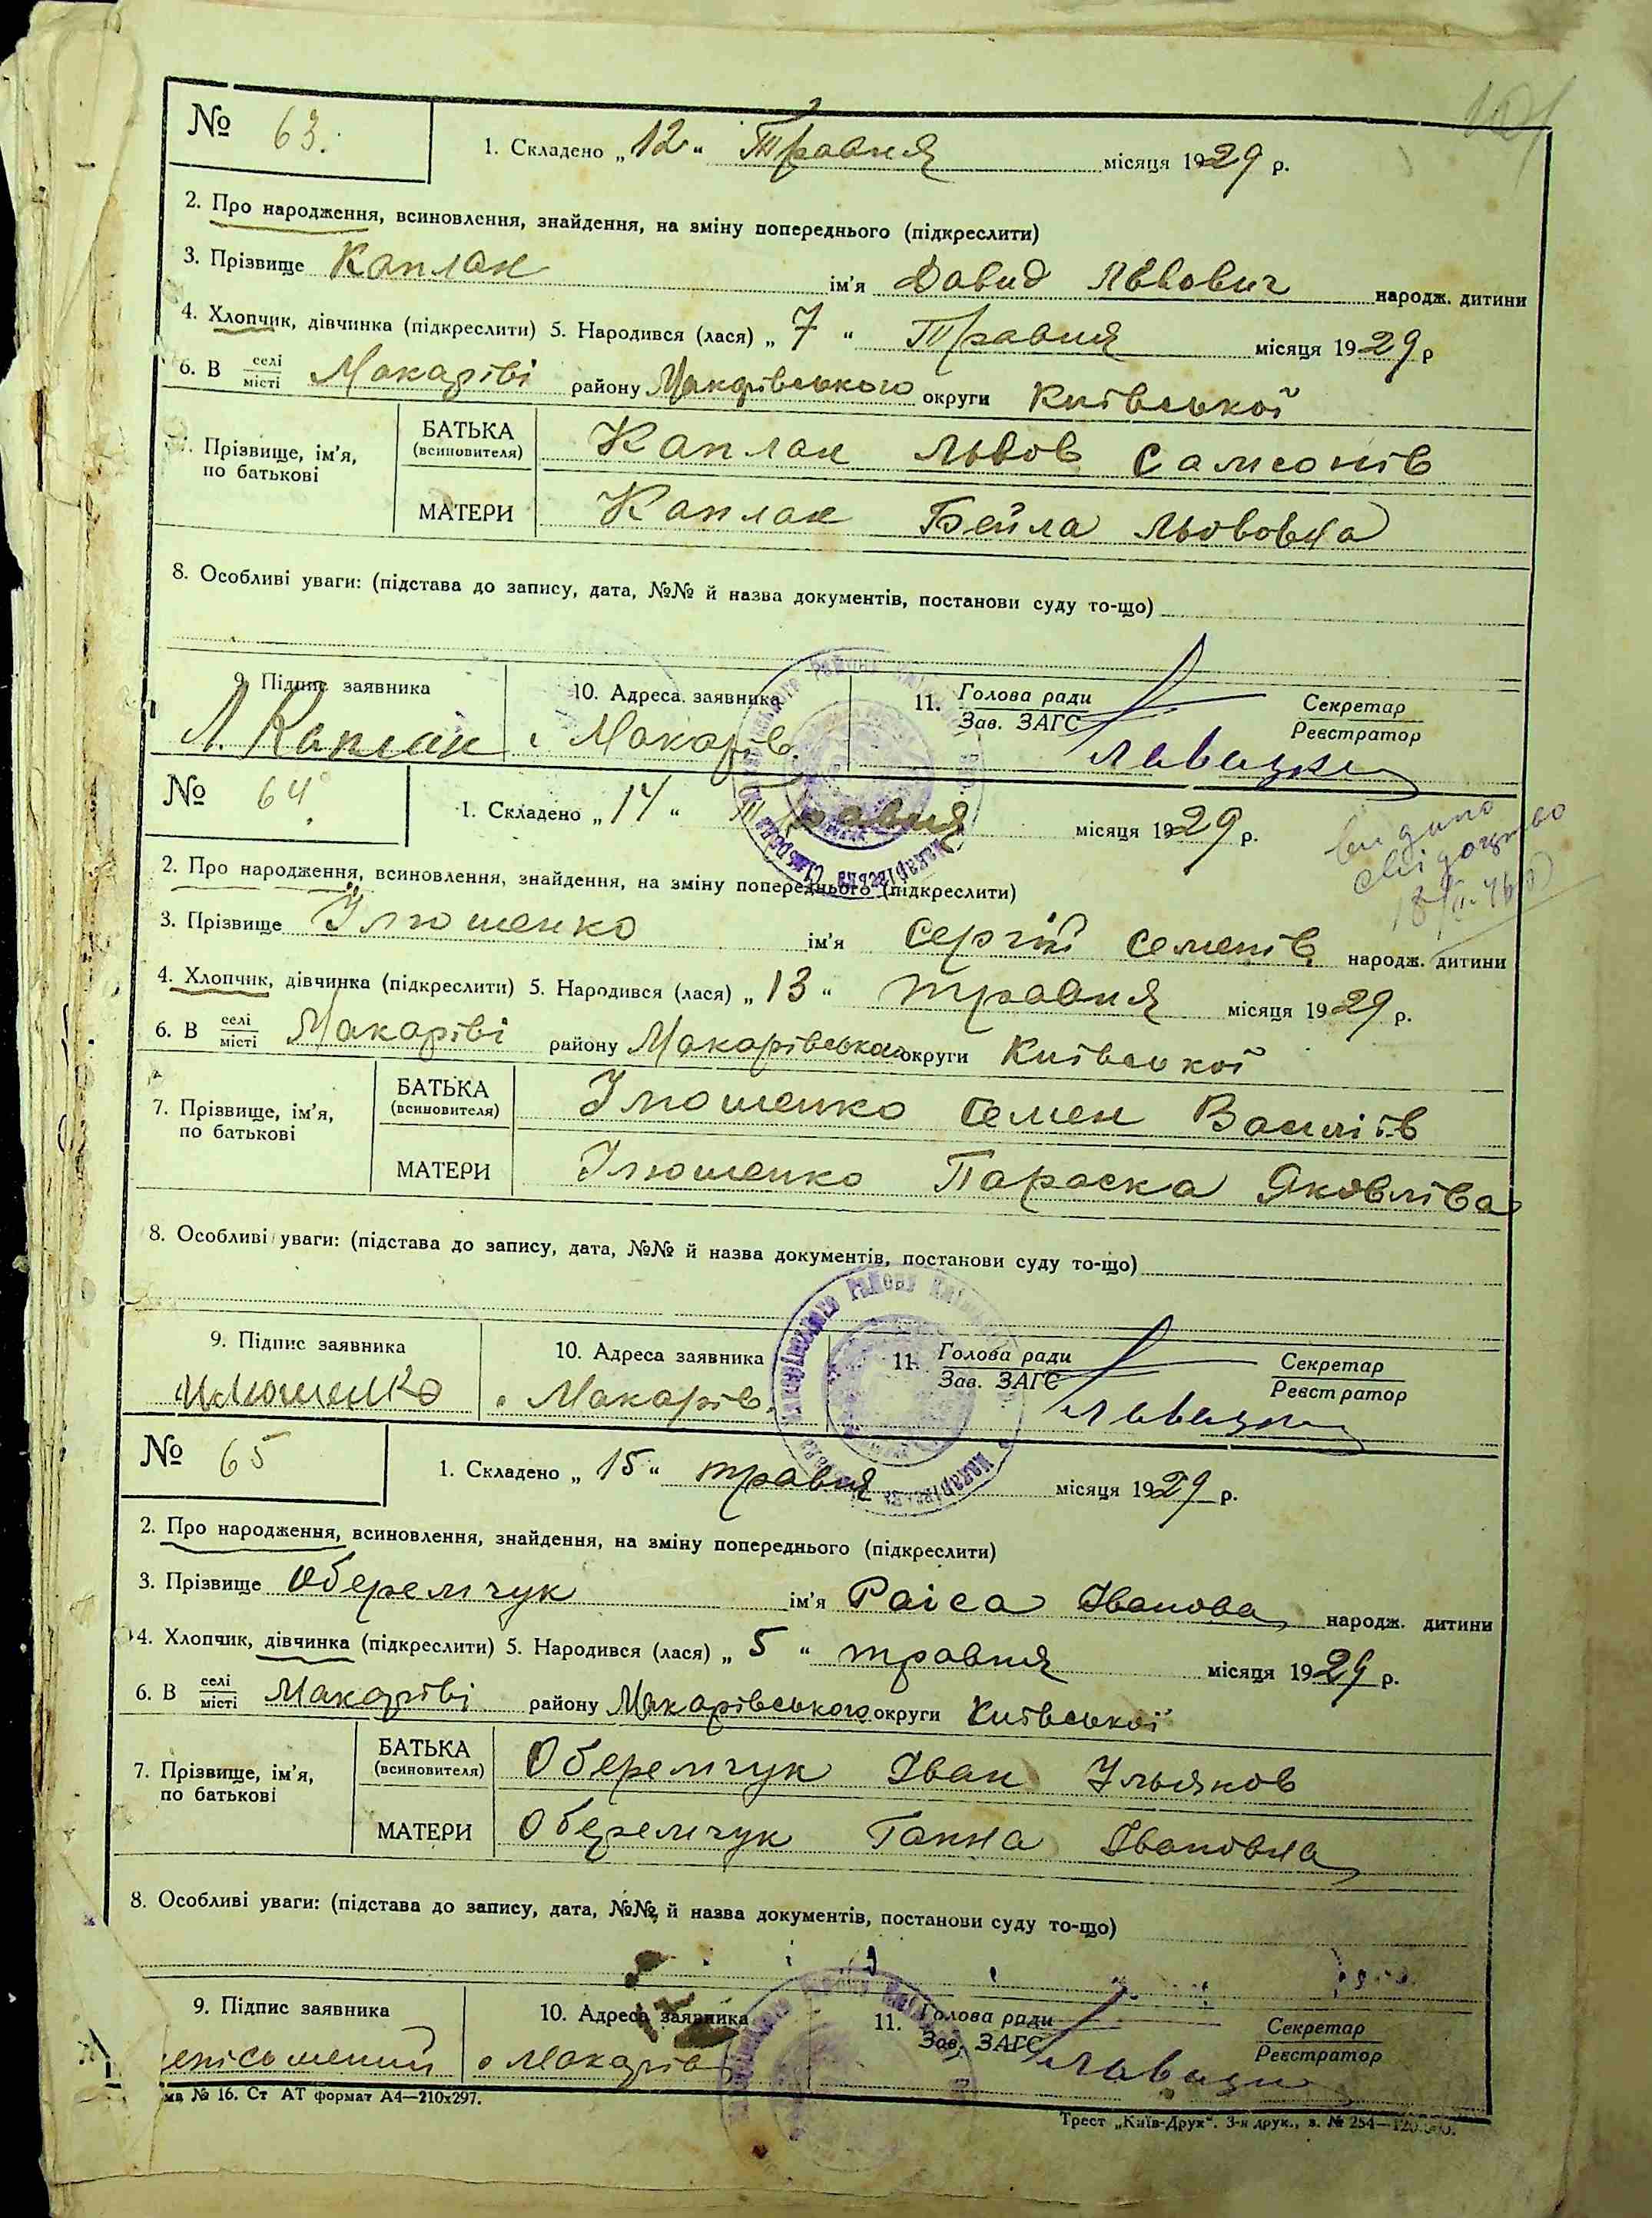 101
№ 63. 1. Складено „12“ Травня місяця 1929 р.
2. Про народження, всиновлення, знайдення, на зміну попереднього (підкреслити)
3. Прізвище Каплан ім'я Давид Львович народж. дитини
4. Хлопчик, дівчинка (підкреслити) 5. Народився (лася) „7“ Травня місяця 1929 р
6. В селі місті Макарові району Макарівського округи Київської
7. Прізвище, ім'я, по батькові
БАТЬКА (всиновителя) Каплан Львов Самсонів
МАТЕРИ Каплан Бейла Львовна
8. Особливі уваги: (підстава до запису, дата, №№ й назва документів, постанови суду то-що)
9. Підпис заявника 10. Адреса заявника 11. Голова ради Зав. ЗАГС Секретар Реєстратор
Л. Каплан Макарів
№ 64 1. Складено „14“ Травня місяця 1929 р.
видано
свідоцтво
2. Про народження, всиновлення, знайдення, на зміну попереднього (підкреслити)
3. Прізвище Ілюшенко ім'я Сергій Семенів народж. дитини
4. Хлопчик, дівчинка (підкреслити) 5. Народився (лася) „13“ травня місяця 1929 р.
6. В селі місті Макарові району Макарівського округи Київської
7. Прізвище, ім'я, по батькові
БАТЬКА (всиновителя) Ілюшенко Семен Василів
МАТЕРИ Ілюшенко Параска Яковліва
8. Особливі уваги: (підстава до запису, дата, №№ й назва документів, постанови суду то-що)
9. Підпис заявника 10. Адреса заявника 11. Голова ради Зав. ЗАГС Секретар Реєстратор
Илюшенко Макарів
№ 65 1. Складено „15“ травня місяця 1929 р.
2. Про народження, всиновлення, знайдення, на зміну попереднього (підкреслити)
3. Прізвище Оберемчук ім'я Раіса Іванова народж. дитини
4. Хлопчик, дівчинка (підкреслити) 5. Народився (лася) „5“ травня місяця 1929 р.
6. В селі місті Макарові району Макарівського округи Київської
7. Прізвище, ім'я, по батькові
БАТЬКА (всиновителя) Оберемчук Іван Ільяков
МАТЕРИ Оберемчук Ганна Івановна
8. Особливі уваги: (підстава до запису, дата, №№ й назва документів, постанови суду то-що)
9. Підпис заявника 10. Адреса заявника 11. Голова ради Зав. ЗАГС Секретар Реєстратор
еписьменний Макарів
ма № 16. Ст АТ формат А4—210х297.
Трест „Київ-Друк“. 3-я друк., з. № 254—